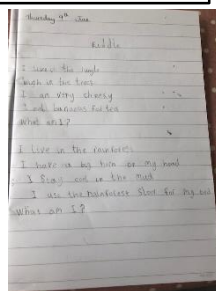 Thursday 9th June
Riddle
I in the jungle
in the trees
I am very cheeky
I eat bananas for tea
What am I?
I live in the rainforest
I have a big horn on my head
I stay cool in the mud
I use the rainforest floor for my bed
What am I?